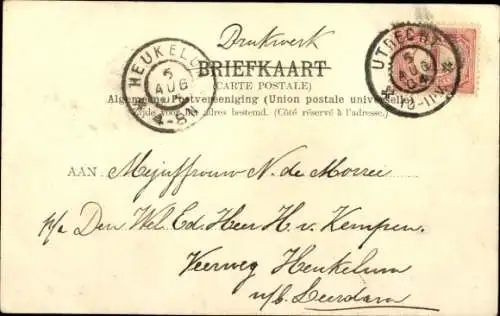 Drukwerk
HEUKELUM
5
AUG
4-8N
UTRECHT
5
AUG
04
10-11V
BRIEFKAART
(CARTE POSTALE)
Algemeene Postvereeniging (Union postale universelle)
Zijde voor het adres bestemd. (Côté réservé à l'adresse.)
AAN Mejuffrouw N. de Morrei
p/a Den Wel. Ed. Heer H. v. Kempen,
Veerweg Heukelum
n/b. Leerdam